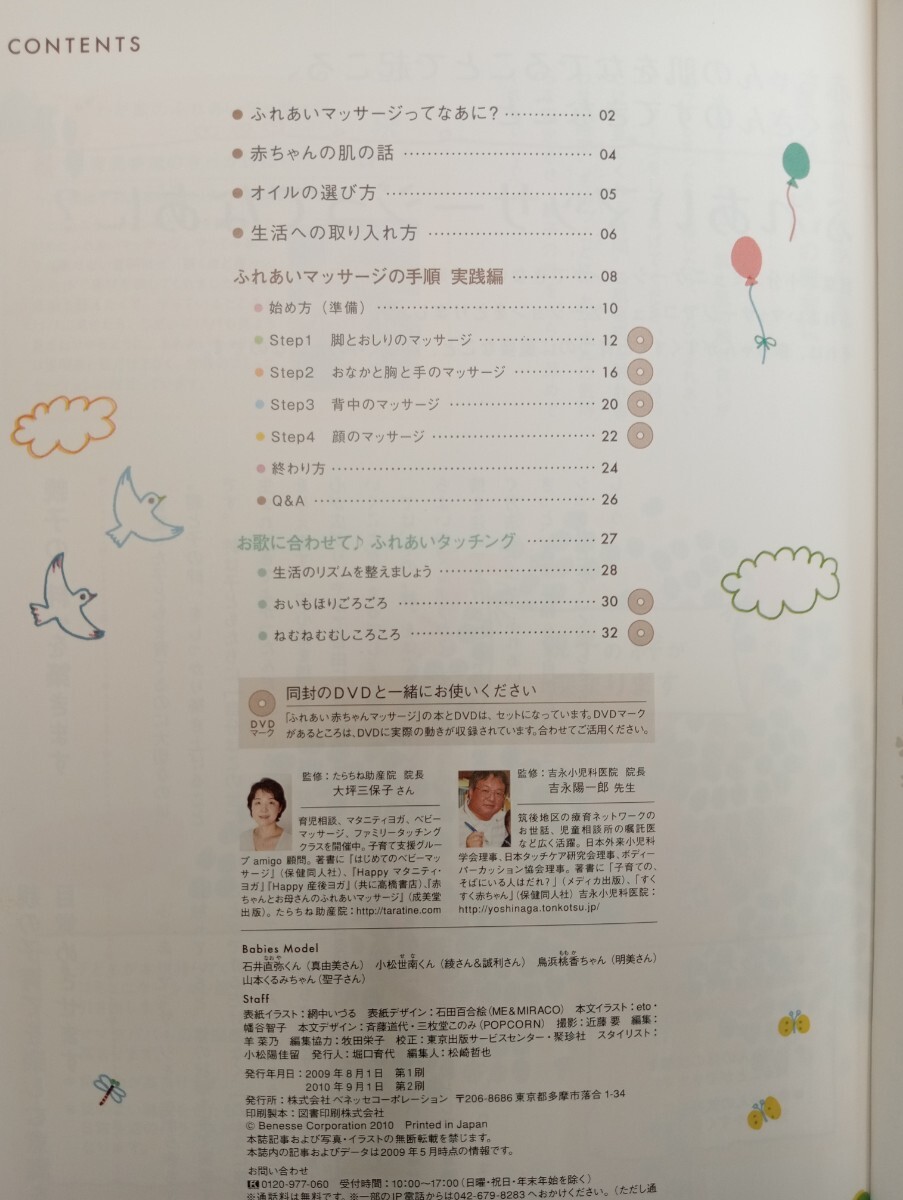 CONTENTS
● ふれあいマッサージってなあに? …………… 02
● 赤ちゃんの肌の話 …………………………… 04
● オイルの選び方 ……………………………… 05
● 生活への取り入れ方 ………………………… 06
ふれあいマッサージの手順 実践編 ………… 08
● 始め方（準備） ……………………………… 10
● Step1 脚とおしりのマッサージ …………… 12
● Step2 おなかと胸と手のマッサージ ……… 16
● Step3 背中のマッサージ …………………… 20
● Step4 顔のマッサージ ……………………… 22
● 終わり方 ……………………………………… 24
● Q&A …………………………………………… 26
お歌に合わせて♪ ふれあいタッチング ……… 27
● 生活のリズムを整えましょう ……………… 28
● おいもほりごろごろ ………………………… 30
● ねむねむむしころころ ……………………… 32
DVD
マーク
同封のDVDと一緒にお使いください
『ふれあい 赤ちゃんマッサージ』の本とDVDは、セットになっています。DVDマーク
があるところは、DVDに実際の動きが収録されています。合わせてご活用ください。
監修：たらちね助産院 院長
大坪三保子 さん
育児相談、マタニティヨガ、ベビー
マッサージ、ファミリータッチング
クラスを開催中。子育て支援グルー
プ amigo 顧問。著書に『はじめてのベビーマッ
サージ』（保健同人社）、『Happy マタニティ・
ヨガ』『Happy 産後ヨガ』（共に高橋書店）、『赤
ちゃんとお母さんのふれあいマッサージ』（成美堂
出版）。たらちね助産院：http://taratine.com
監修：吉永小児科医院 院長
吉永陽一郎 先生
筑後地区の療育ネットワークの
お世話、児童相談所の嘱託医
など広く活躍。日本外来小児科
学会理事、日本タッチケア研究会理事、ボディー
パーカッション協会理事。著書に『子育ての、
そばにいる人はだれ？』（メディカ出版）、『すく
すく赤ちゃん』（保健同人社）吉永小児科医院：
http://yoshinaga.tonkotsu.jp/
Babies Model
石井直弥くん（真由美さん） 小松世南くん（綾さん&誠利さん） 鳥浜桃香ちゃん（明美さん）
山本くるみちゃん（聖子さん）
Staff
表紙イラスト：網中いづる 表紙デザイン：石田百合絵（ME&MIRACO） 本文イラスト：eto・
幡谷智子 本文デザイン：斉藤道代・三枚堂このみ（POPCORN） 撮影：近藤 要 編集：
羊 菜乃 編集協力：牧田栄子 校正：東京出版サービスセンター・聚珍社 スタイリスト：
小松陽佳留 発行人：堀口育代 編集人：松崎哲也
発行年月日：2009年8月1日 第1刷
2010年9月1日 第2刷
発行所：株式会社 ベネッセコーポレーション 〒206-8686 東京都多摩市落合1-34
印刷製本：図書印刷株式会社
© Benesse Corporation 2010 Printed in Japan
本誌記事および写真・イラストの無断転載を禁じます。
本誌内の記事およびデータは2009年5月時点の情報です。
お問い合わせ
0120-977-060 受付時間：10:00〜17:00（日曜・祝日・年末年始を除く）
※通話料は無料です。※一部のIP電話からは042-679-8283へおかけください。（ただし通